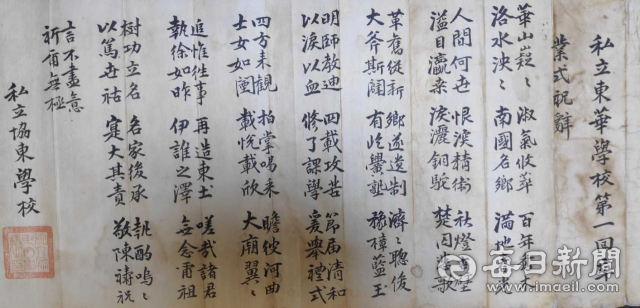 私立東華學校第一回卒
業式祝辭
華山嶷〻 淑氣收萃 百年
洛水泱〻 南國名鄉 滿地
人間何世 恨深精衛 社燈
溢目瀛桑 淚灑銅駝 楚囚悲歌
革舊從新 鄉遂遺制 濟〻聰俊
大斧斯闢 有此黌塾 豫樟藍玉
明師教迪 四載攻苦 節屆清和
以淚以血 修了課學 爰舉禮式
四方來觀 拍掌喝采 瞻彼河曲
士女如闉 載悅載欣 大廟翼〻
追惟徃事 再造東土 嗟哉諸君
執徐如昨 伊誰之澤 無念甫祖
樹功立名 名家後承 酌嗚〻
以篤世祜 寔大其責 敬陳禱祝
言不盡意
祈有無極
私立協東學校
每日新聞